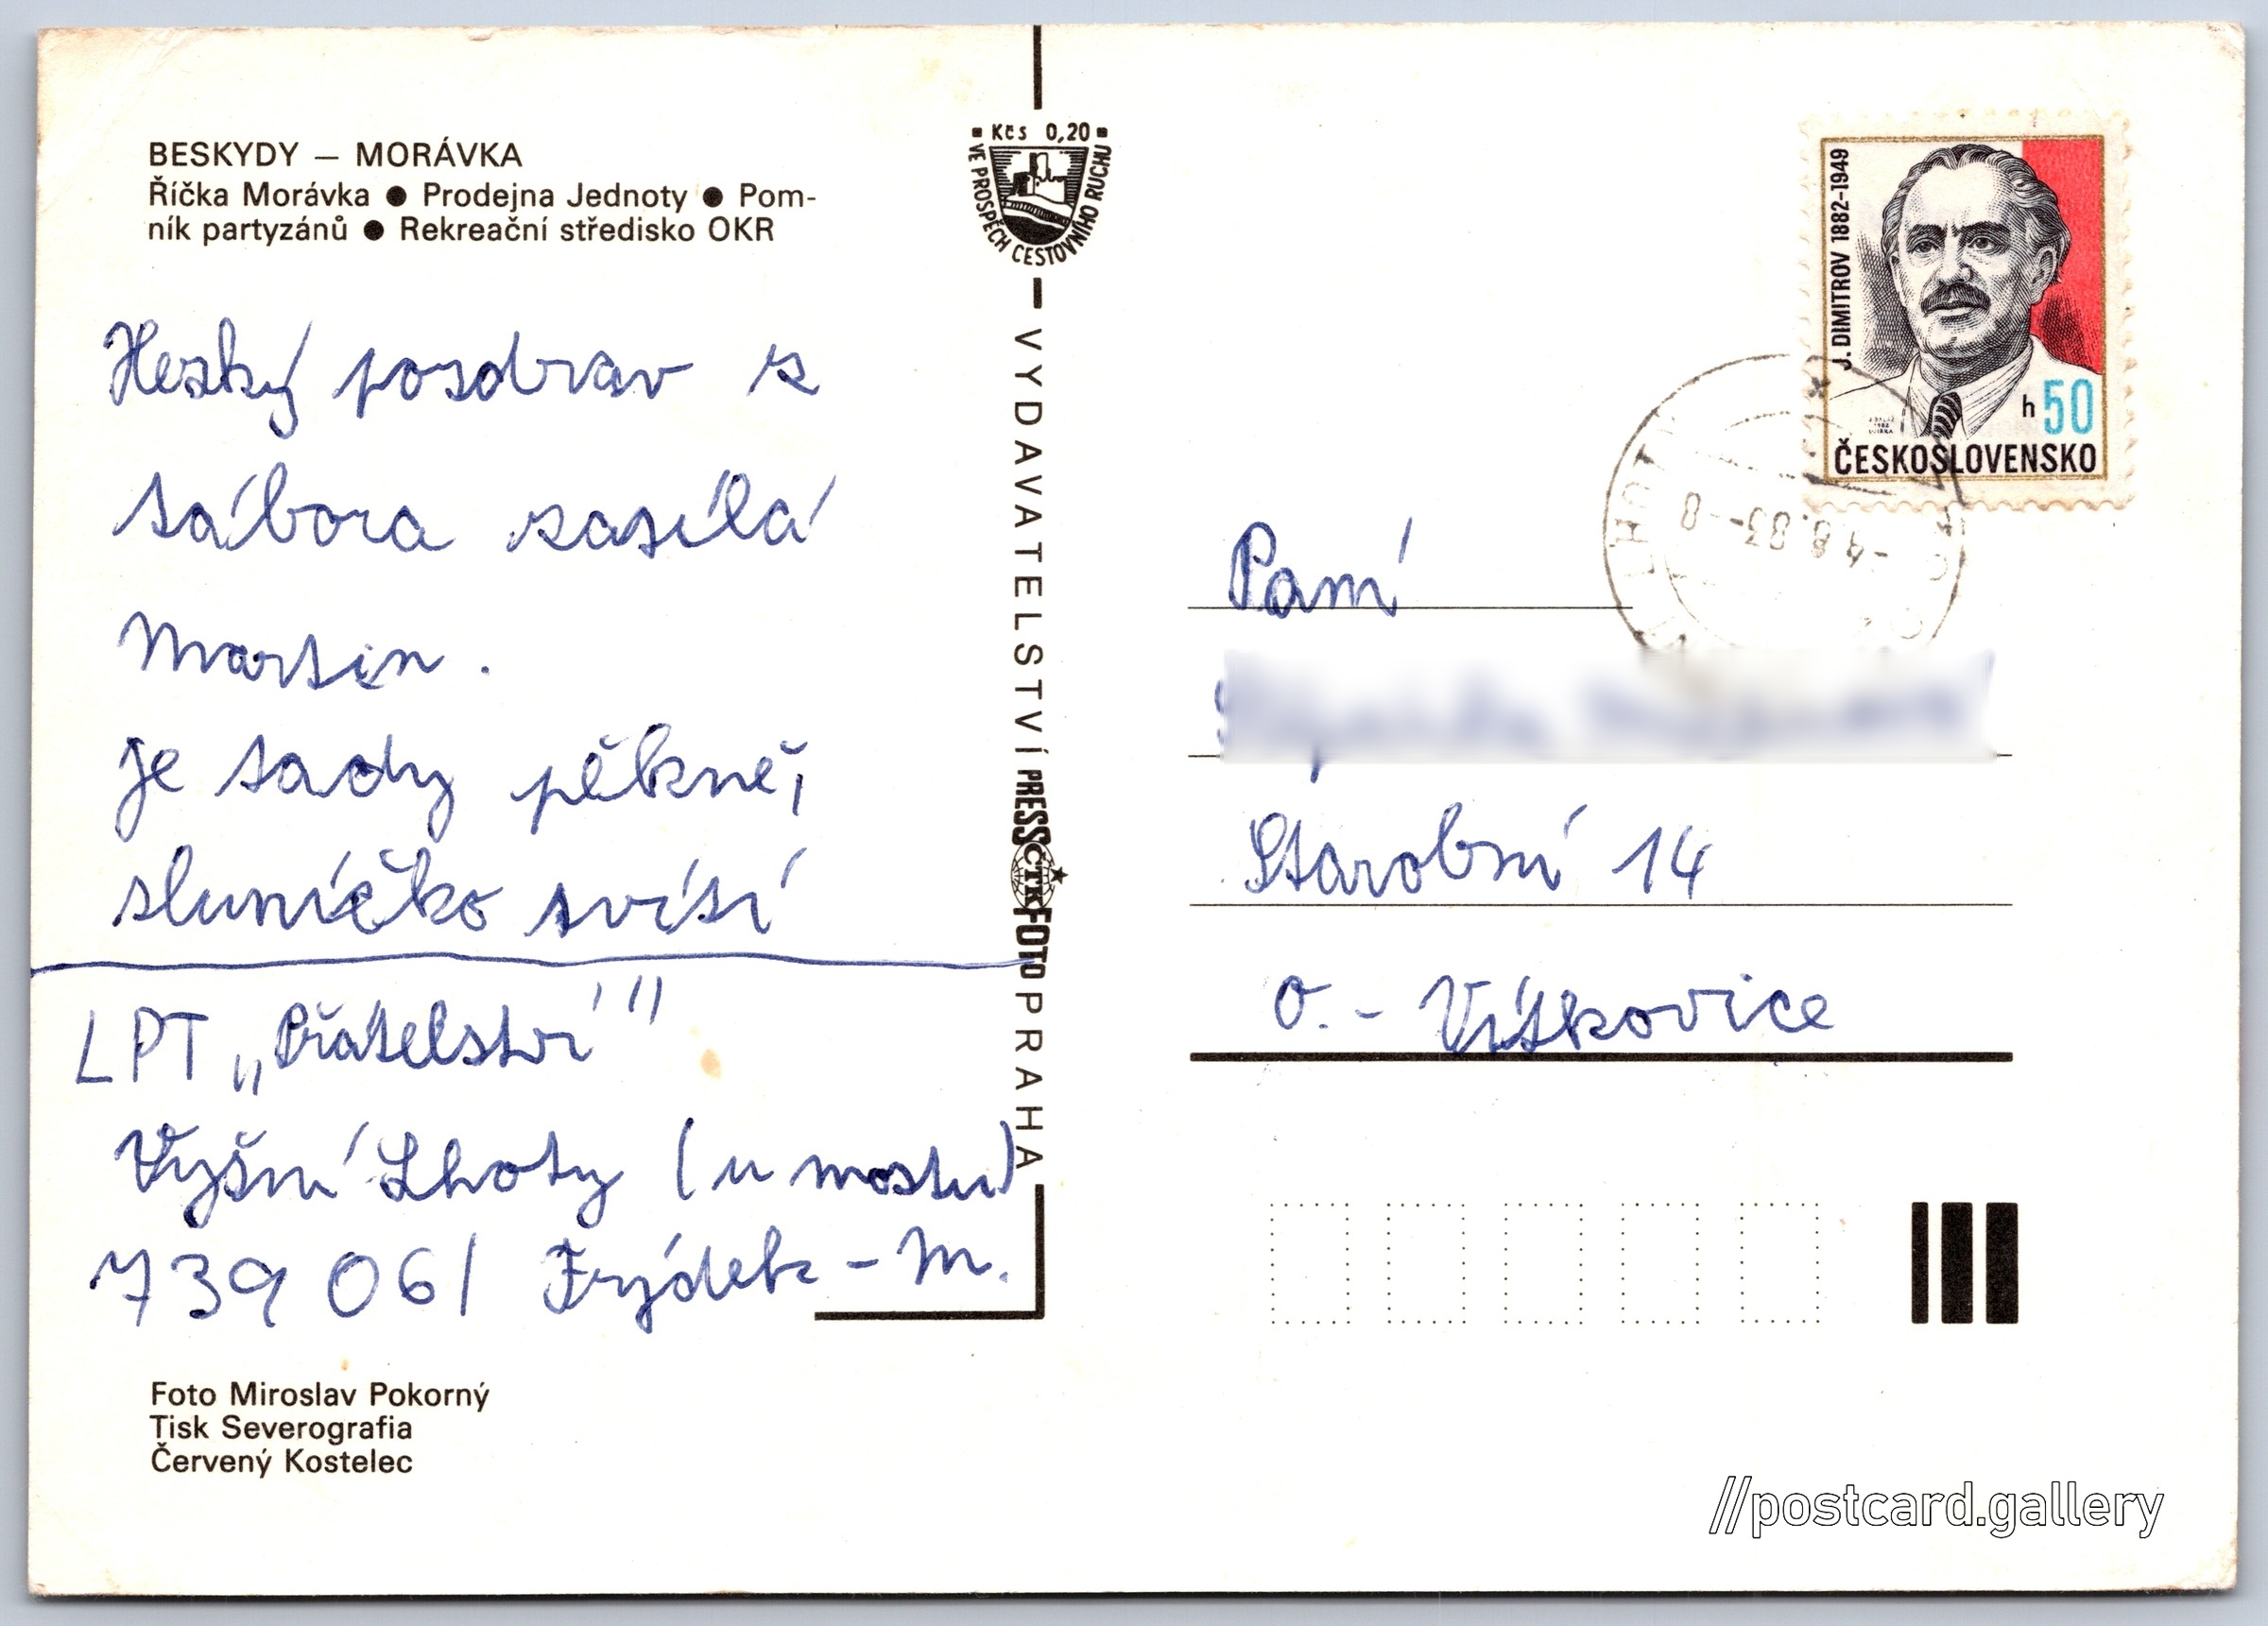 BESKYDY — MORÁVKA
Říčka Morávka ● Prodejna Jednoty ● Pom-
ník partyzánů ● Rekreační středisko OKR
Hezký pozdrav z
tábora zasílá
Martin.
Je tady pěkně,
sluníčko svítí
LPT „Přátelství"
Vyšní Lhoty (u mostu)
739 06/ Frýdek-M.
Foto Miroslav Pokorný
Tisk Severografia
Červený Kostelec
Kčs 0,20
VE PROSPĚCH CESTOVNÍHO RUCHU
VYDAVATELSTVÍ PRESSFOTO PRAHA
ČTK
J. DIMITROV 1882-1949
h 50
ČESKOSLOVENSKO
-9.8.83-8
Paní
Starobní 14
O.- Vítkovice
//postcard.gallery